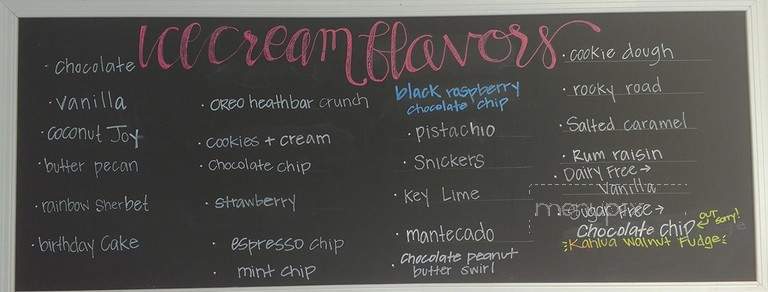 Ice cream flavors
· Chocolate
· Vanilla
· Coconut Joy
· butter pecan
· rainbow Sherbet
· birthday Cake
· OREO heathbar crunch
· cookies + cream
· Chocolate chip
· strawberry
· espresso chip
· mint chip
black raspberry
chocolate chip
· pistachio
· Snickers
· Key Lime
· mantecado
· Chocolate peanut
butter swirl
· cookie dough
· rocky road
· Salted caramel
· Rum raisin
· Dairy Free →
Vanilla
· Sugar Free →
Chocolate chip
← OUT
sorry!
Kahlua Walnut Fudge
menupix